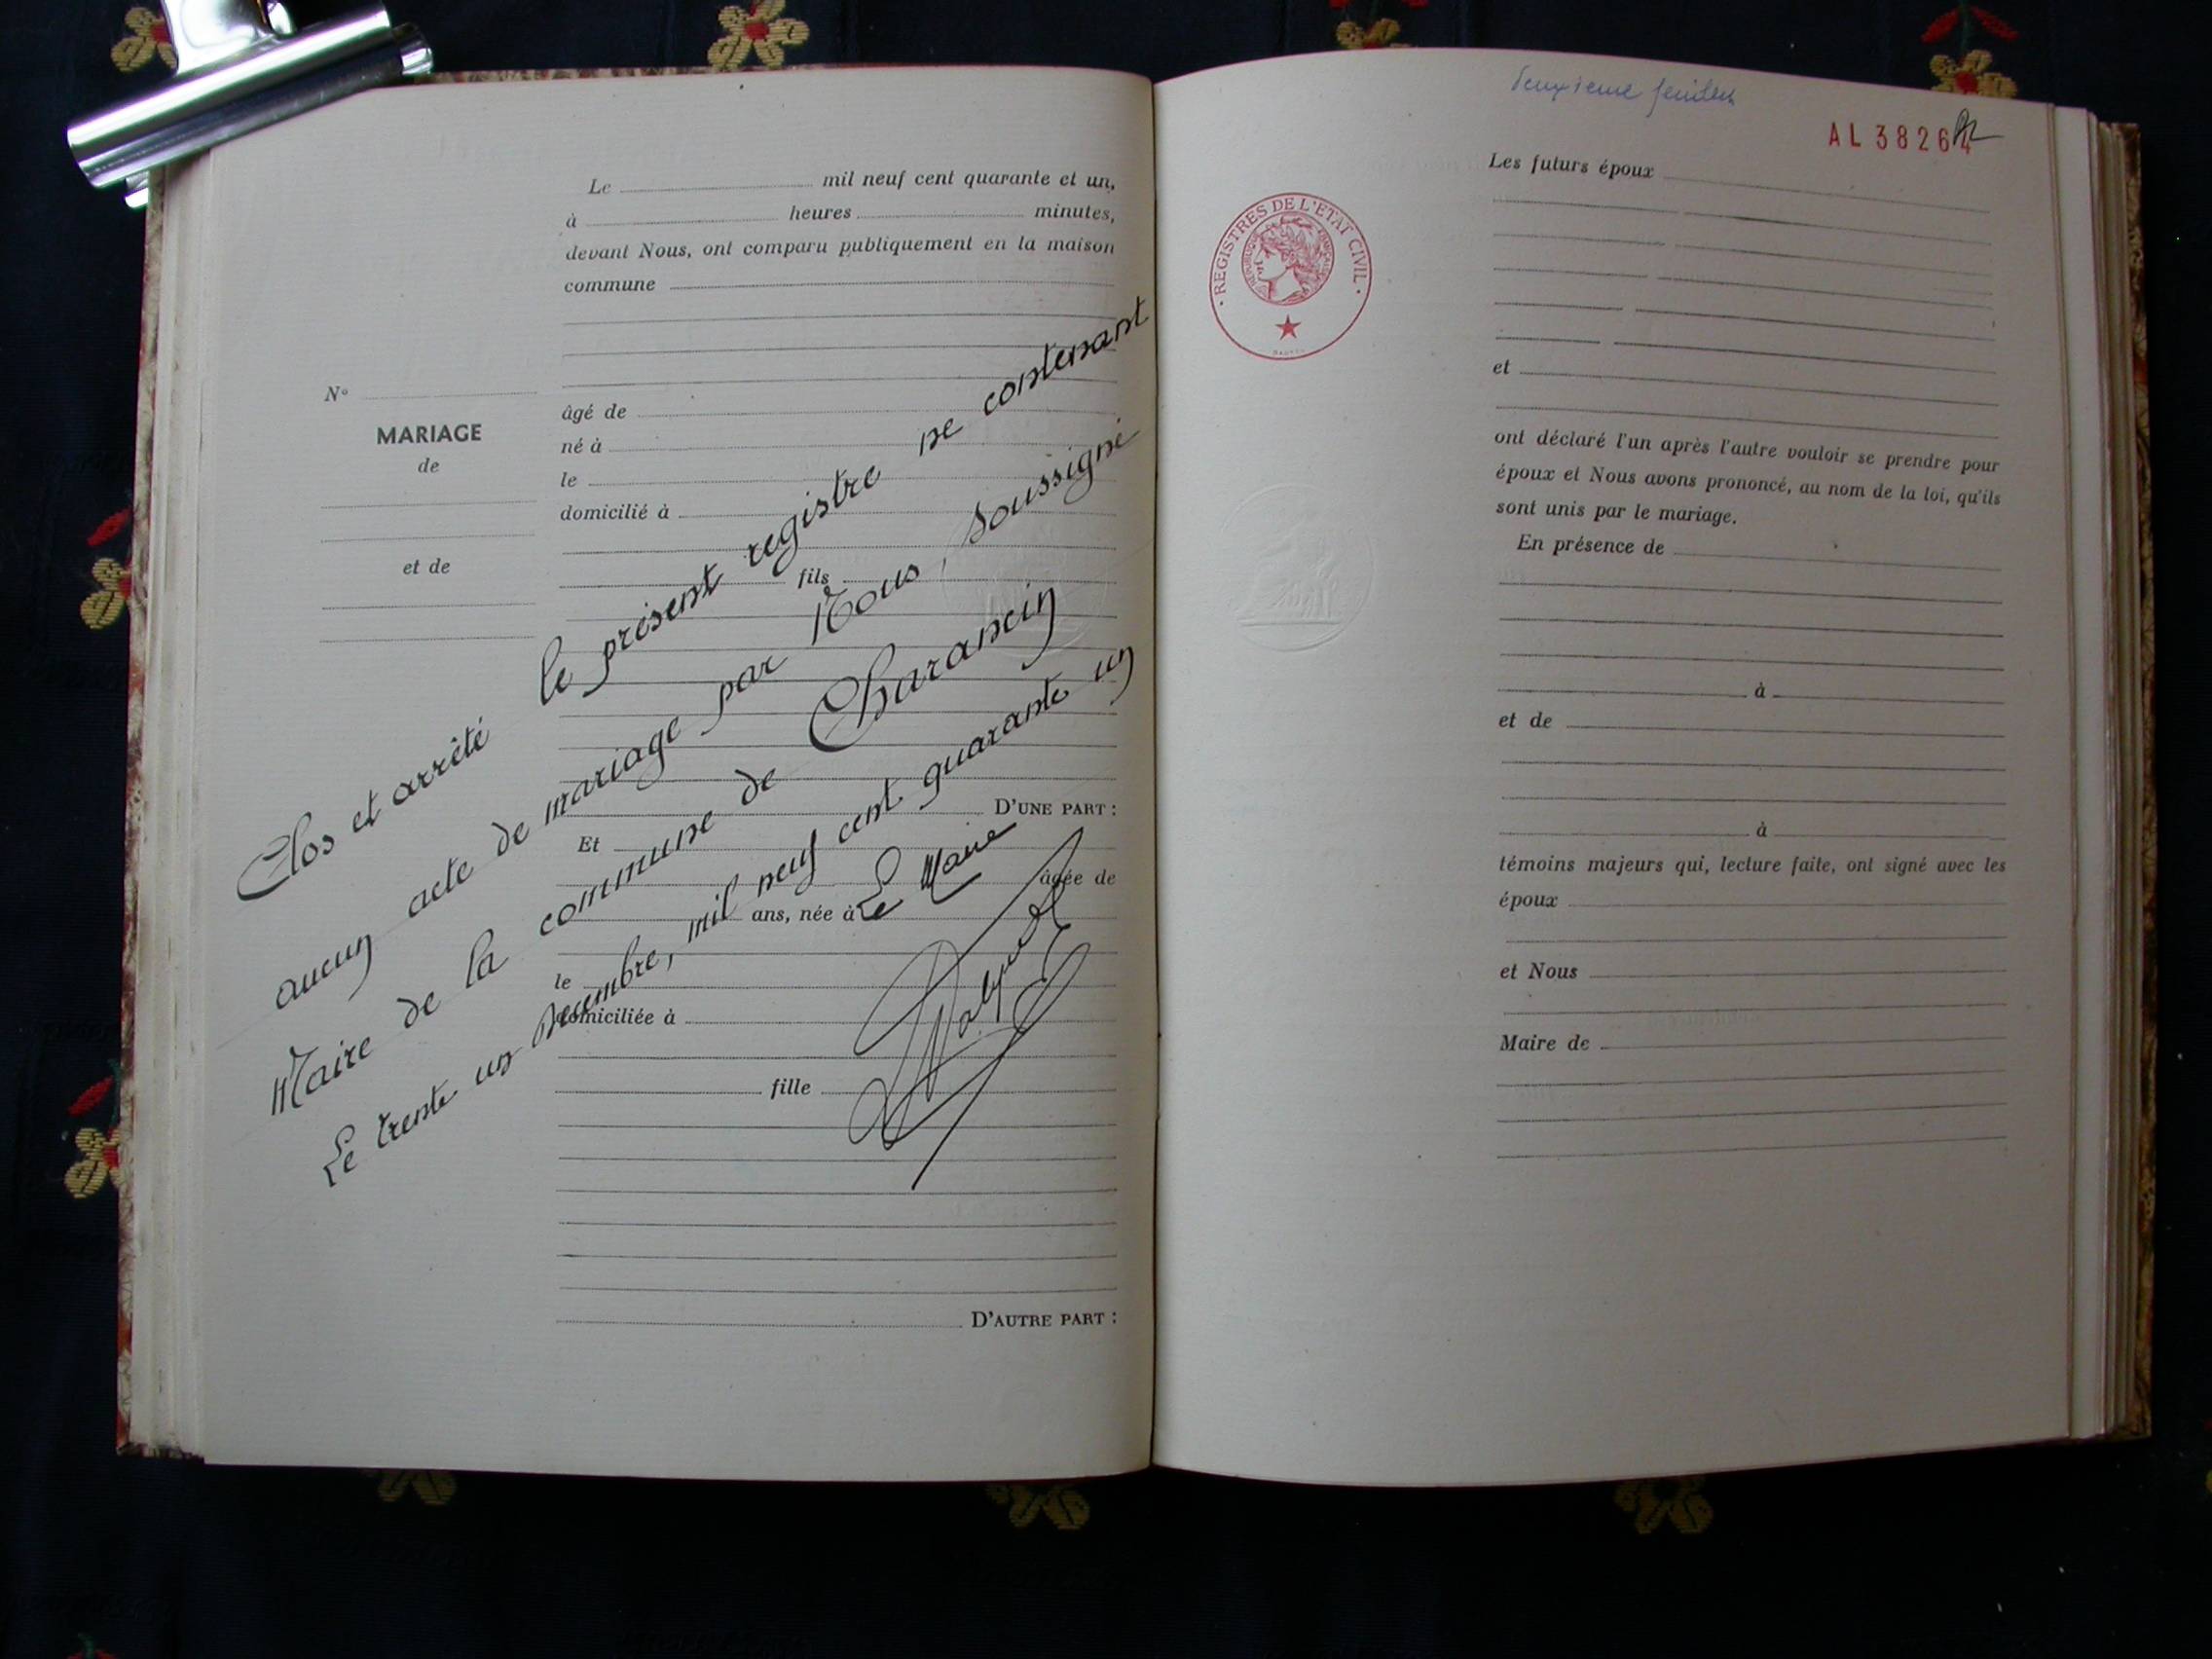 Le mil neuf cent quarante et un,
à heures minutes,
devant Nous, ont comparu publiquement en la maison
commune
âgé de
né à
le
domicilié à
fils
D'UNE PART :
Et
âgée de
ans, née à
le
domiciliée à
fille
D'AUTRE PART :
N°
MARIAGE
de
et de
Clos et arrêté le présent registre ne contenant
aucun acte de mariage par Nous, soussigné
Maire de la commune de Charancin
Le trente un Décembre, mil neuf cent quarante un
Le Maire
deuxième feuillet
AL 38264
REGISTRES DE L'ETAT CIVIL
REPUBLIQUE FRANÇAISE
Les futurs époux
et
ont déclaré l'un après l'autre vouloir se prendre pour
époux et Nous avons prononcé, au nom de la loi, qu'ils
sont unis par le mariage.
En présence de
à
et de
à
témoins majeurs qui, lecture faite, ont signé avec les
époux
et Nous
Maire de